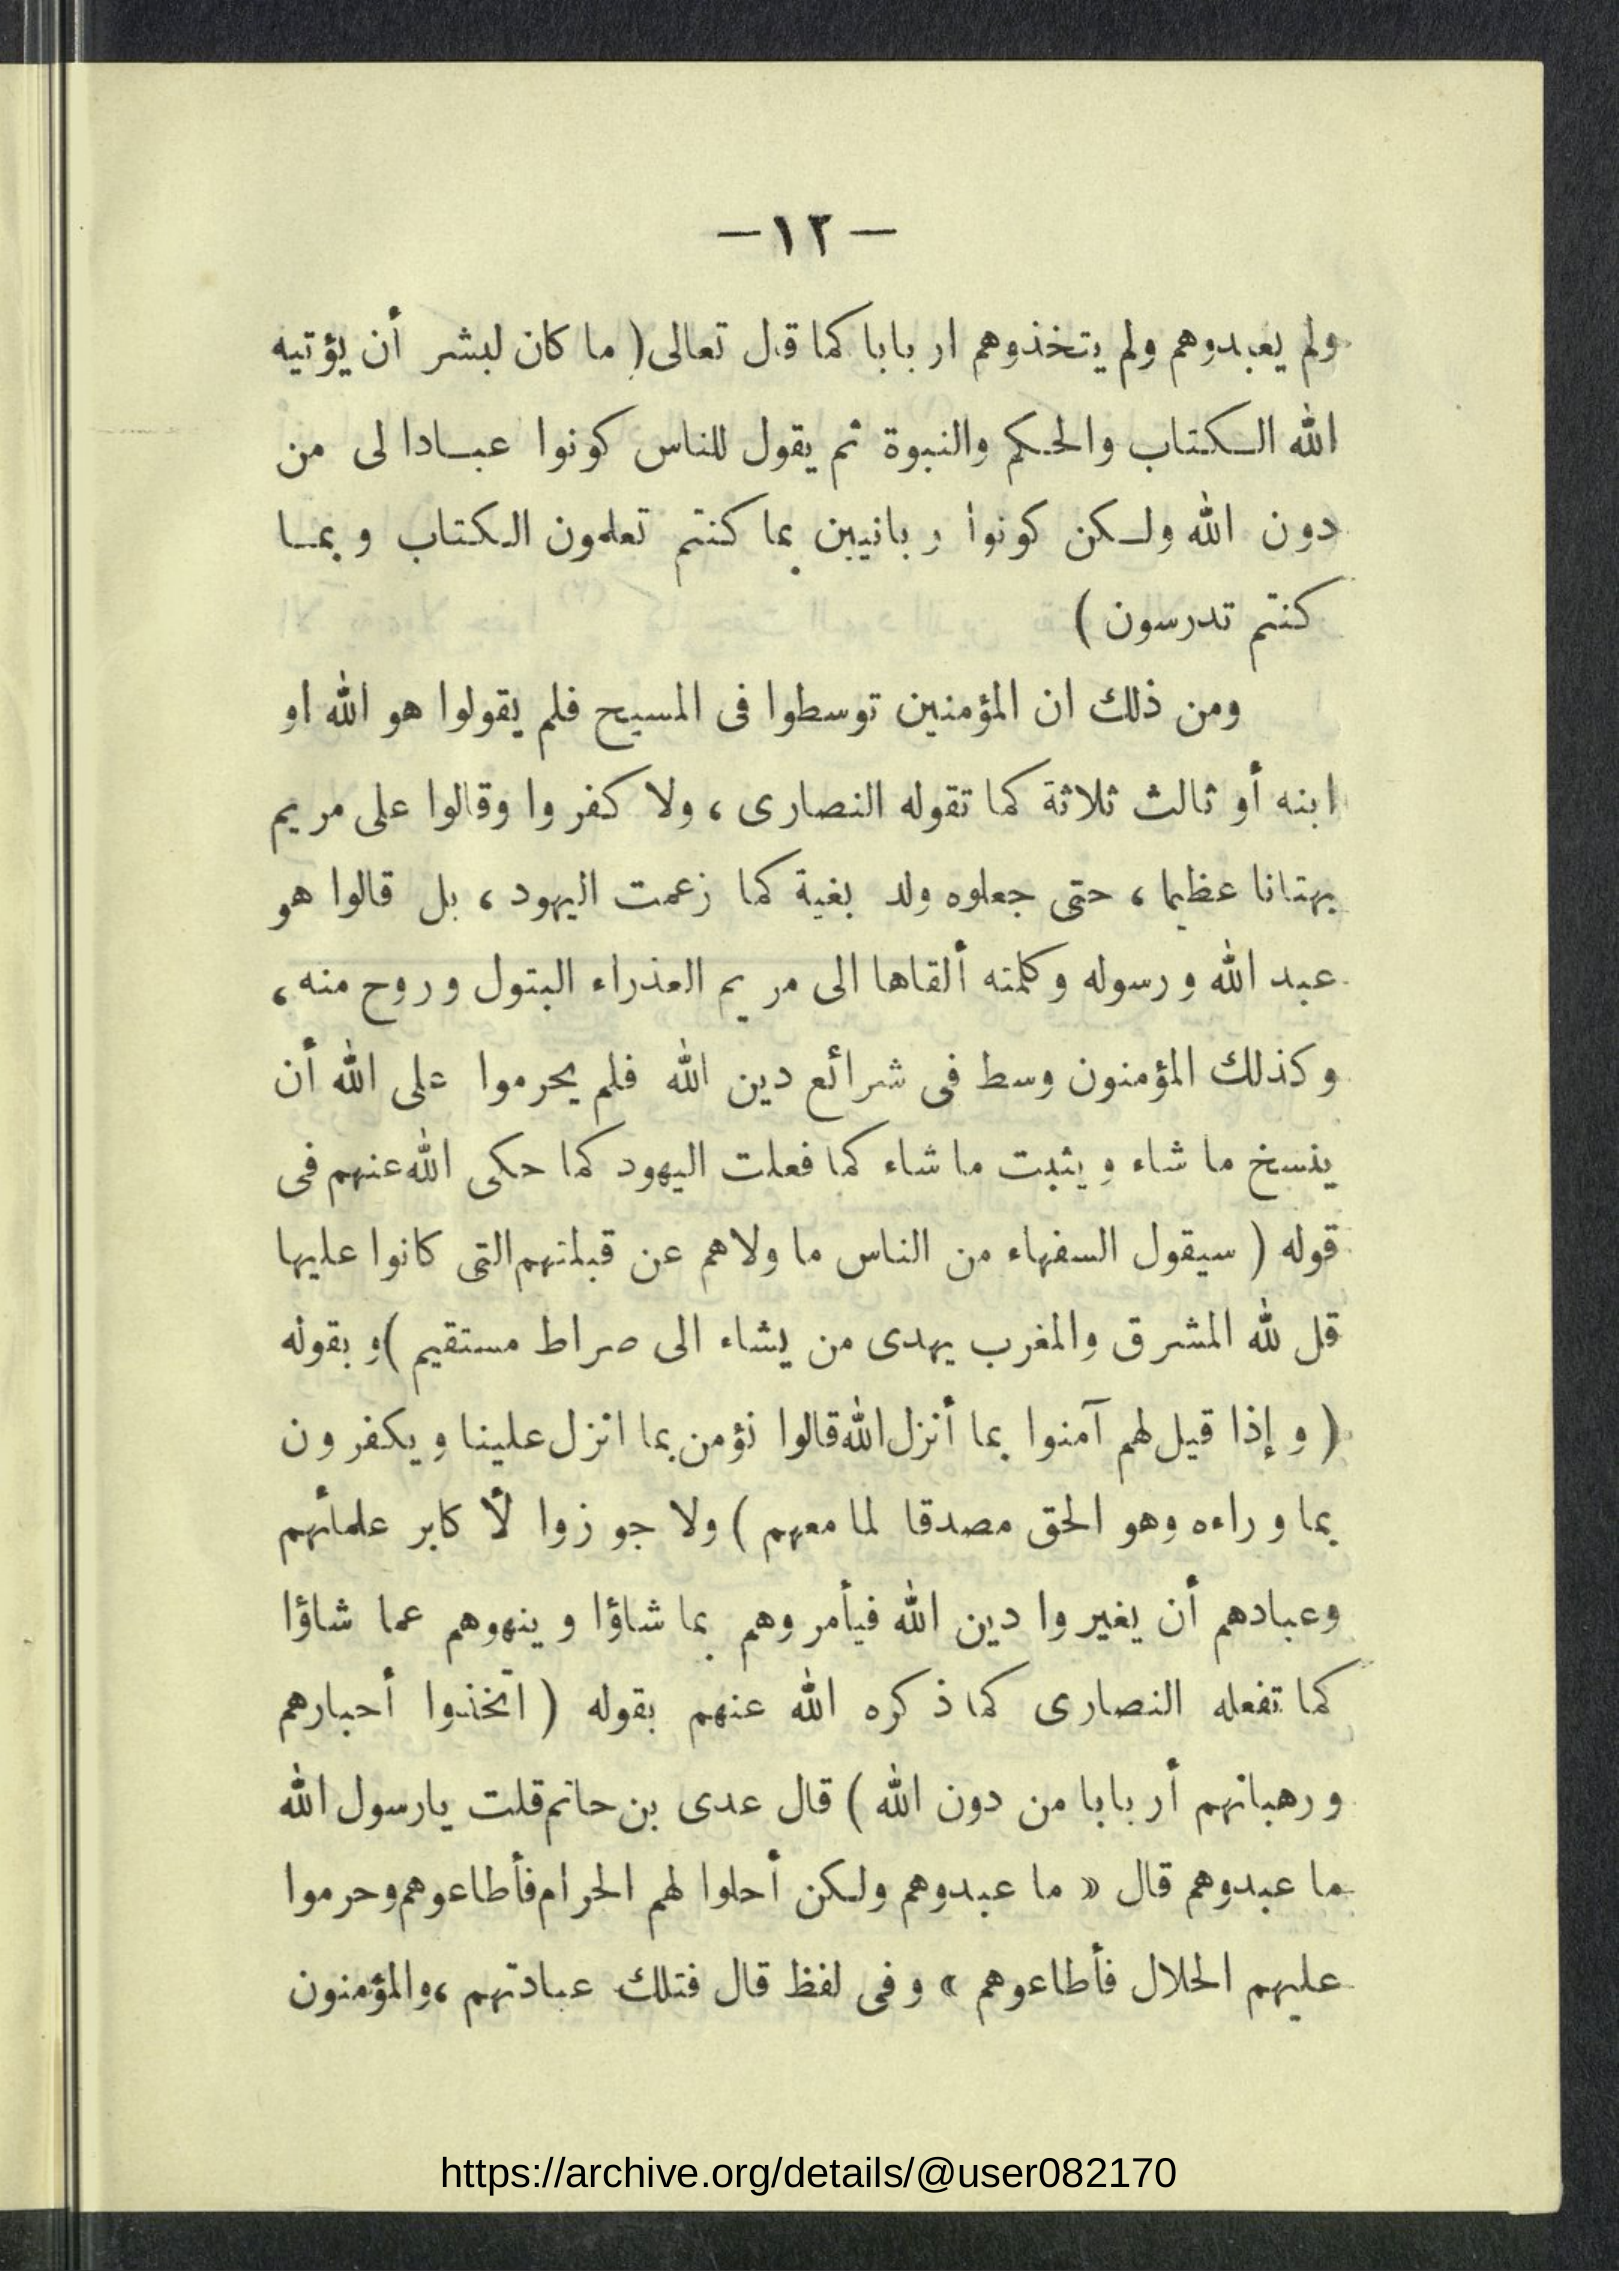 — ١٢ —
ولم يعبدوهم ولم يتخذوهم اربابا كما قال تعالى ( ما كان لبشر أن يؤتيه
الله الكتاب والحكم والنبوة ثم يقول للناس كونوا عبادا لى من
دون الله ولكن كونوا ربانيين بما كنتم تعلمون الكتاب وبما
كنتم تدرسون )
ومن ذلك ان المؤمنين توسطوا فى المسيح فلم يقولوا هو الله او
ابنه أو ثالث ثلاثة كما تقوله النصارى ، ولا كفروا وقالوا على مريم
بهتانا عظيما ، حتى جعلوه ولد بغية كما زعمت اليهود ، بل قالوا هو
عبد الله ورسوله وكلمته ألقاها الى مريم العذراء البتول وروح منه ،
وكذلك المؤمنون وسط فى شرائع دين الله فلم يحرموا على الله أن
ينسخ ما شاء ويثبت ما شاء كما فعلت اليهود كما حكى الله عنهم فى
قوله ( سيقول السفهاء من الناس ما ولاهم عن قبلتهم التى كانوا عليها
قل لله المشرق والمغرب يهدى من يشاء الى صراط مستقيم ) وبقوله
( وإذا قيل لهم آمنوا بما أنزل الله قالوا نؤمن بما انزل علينا ويكفرون
بما وراءه وهو الحق مصدقا لما معهم ) ولا جوزوا لأكابر علمائهم
وعبادهم أن يغيروا دين الله فيأمروهم بما شاؤا وينهوهم عما شاؤا
كما تفعله النصارى كما ذكره الله عنهم بقوله ( اتخذوا أحبارهم
ورهبانهم أربابا من دون الله ) قال عدى بن حاتم قلت يارسول الله
ما عبدوهم قال « ما عبدوهم ولكن أحلوا لهم الحرام فأطاعوهم وحرموا
عليهم الحلال فأطاعوهم » وفى لفظ قال فتلك عبادتهم ، والمؤمنون
https://archive.org/details/@user082170